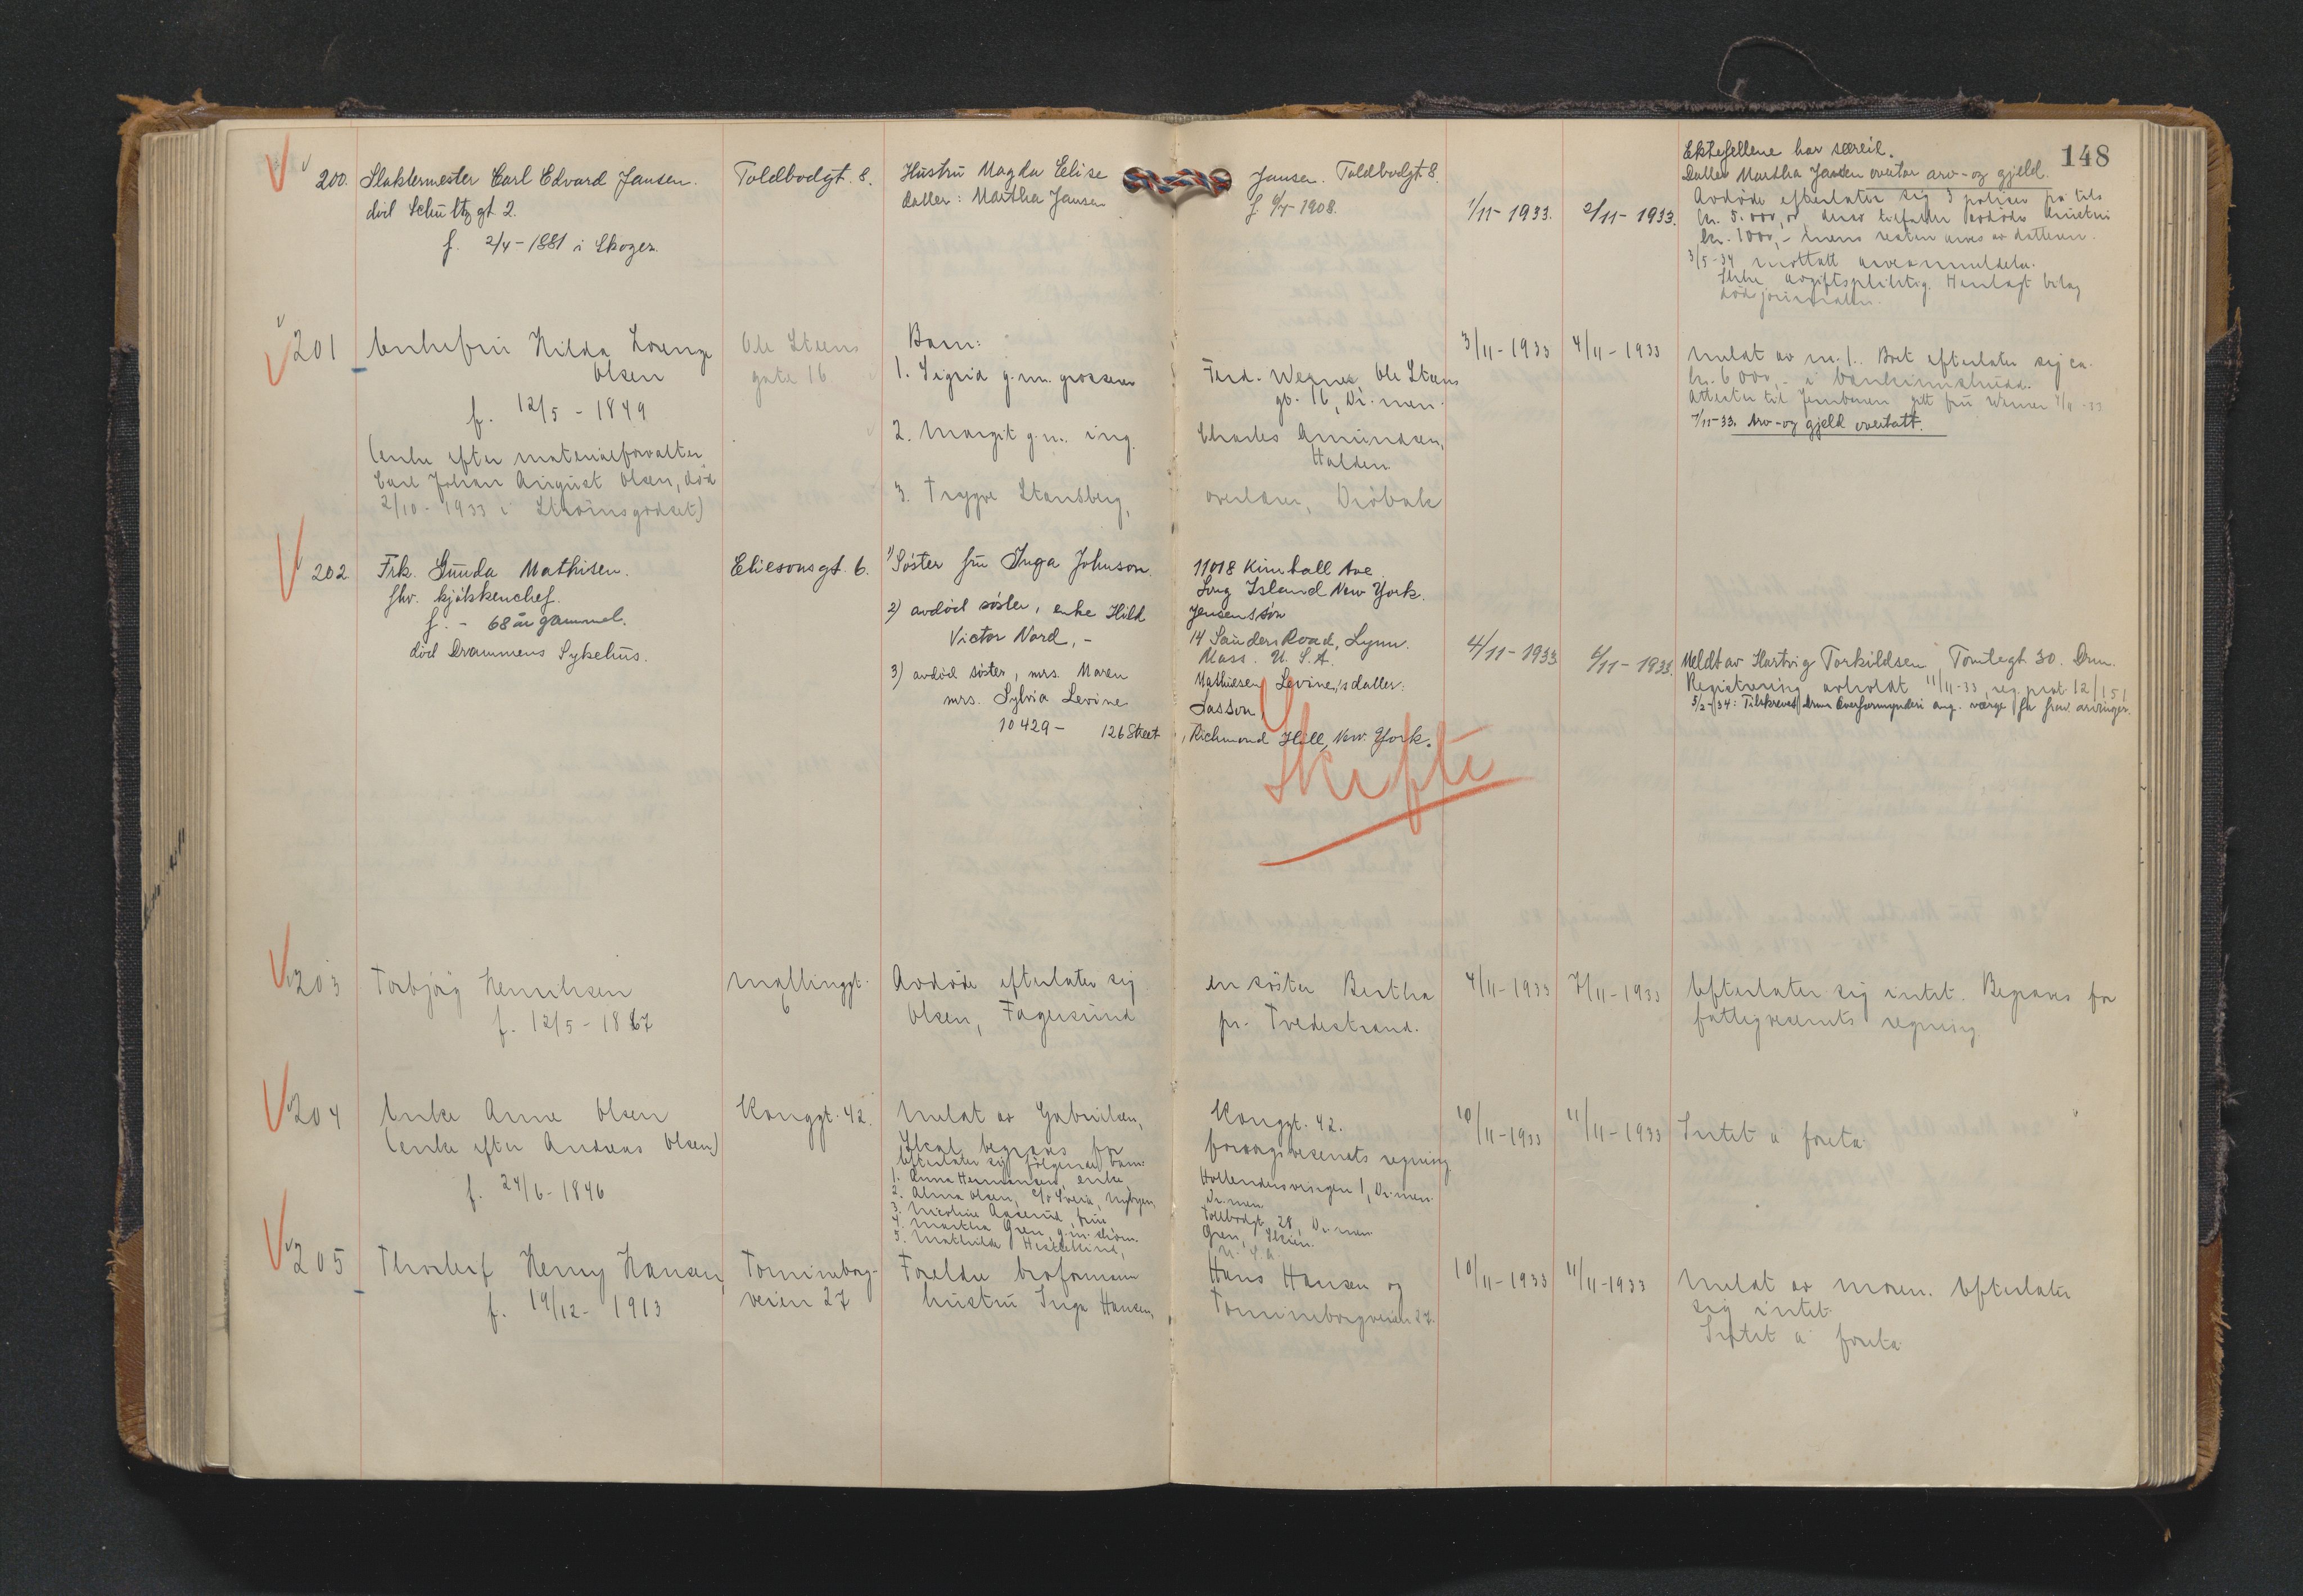 148
200. Slaktermester Carl Edvard Jansen. Toldbodgt. 8. Hustru Magda Elise Jansen. Toldbodgt. 8. 1/11-1933. 2/11-1933.
död Schultzgt 2. Datter: Martha Jansen
f. 2/4-1881 i Skoger.
Ektefellene har særeie.
Datter Martha Jansen overtar arv- og gjeld.
Avdöde efterlater sig 3 poliser på tils
kr. 5.000,- derav tilfaller avdödes hustru
kr. 1000,- mens resten arves av datteren.
3/5-34 mottatt arveanmeldelse.
Ikke avgiftspliktig. Henlagt bilag
dödsjournalen.
201 Enkefru Hilda Lorenze Ole Steens Barn: 3/11-1933 4/11-1933
Olsen gate 16 1. Sigrid g.m. grosserer Ferd. Werner, Ole Steens
f. 12/5-1849 gt. 16, Dr.men.
2. Margit g.m. ing. Charles Amundsen,
(enke efter materialforvalter Halden.
Carl Johan August Olsen, död
2/10-1933 i Strömsgodset) 3. Trygve Stansberg, overlærer, Dröbak
Meldt av nr. 1. Boet efterlater sig ca.
kr. 6 000,- i bankinnskudd.
Attester til Jernbanen gitt fru Werner 4/11-33
7/11-33. Arv- og gjeld overtatt.
202 Frk. Gunda Mathisen. Eliesonsgt. 6. 1) Söster fru Inga Johnson 11018 Kimball Ave
fhv. kjökkenchef. Long Island New York.
f. - 68 år gammel. 2) avdöd söster, enke Hild Jensens sön
död Drammens Sykehus. Victor Nord,- 14 Sanders Road, Lynn.
Mass. U.S.A.
3) avdöd söster, mrs. Maren Mathiesen Levine's datter:
mrs. Sylvia Levine Sasson,
10429- 126 Street, Richmond Hill, New York.
4/11-1933 6/11-1933. Meldt av Hartvig Torkildsen, Tomtegt 30. Drm.
Registrering avholdt 11/11-33, reg. prot. 12/151
5/2-34: Tilskrevet Drm. Overformynderi ang. værge for frav. arvinger.
Skifte
203 Torbjörg Henriksen Mallinggt. Avdöde efterlater sig en söster Bertha 4/11-1933 7/11-1933 Efterlater sig intet. Begraves for
f. 12/5-1867 6 Olsen, Fagersund pr. Tvedestrand. fattigvesenets regning
204 Enke Anne Olsen Konggt. 42. Meldt av Gabrielsen, Konggt. 42. 10/11-1933 11/11-1933 Intet å foreta
(enke efter Andreas Olsen) Skal begraves for forsorgsvesenets regning
f. 24/6-1846 Efterlater sig fölgende barn:
1. Anna Hermansen, enke, Hollendersvingen 1, Dr.men.
2. Alma Olsen, Dr.men
3. Nicoline Aaserud, frue Tollbodgt. 28, Dr.men
4. Martha Gren, g.m. Gren, Skien.
5. Mathilde U.S.A.
205 Thorleif Henry Hansen, Tomineborg- Foreldre broformann Hans Hansen og 10/11-1933 11/11-1933 Meldt av moren. Efterlater
f. 19/12-1913 veien 27 hustru Inga Hansen, Tomineborgveien 27. sig intet.
Intet å foreta